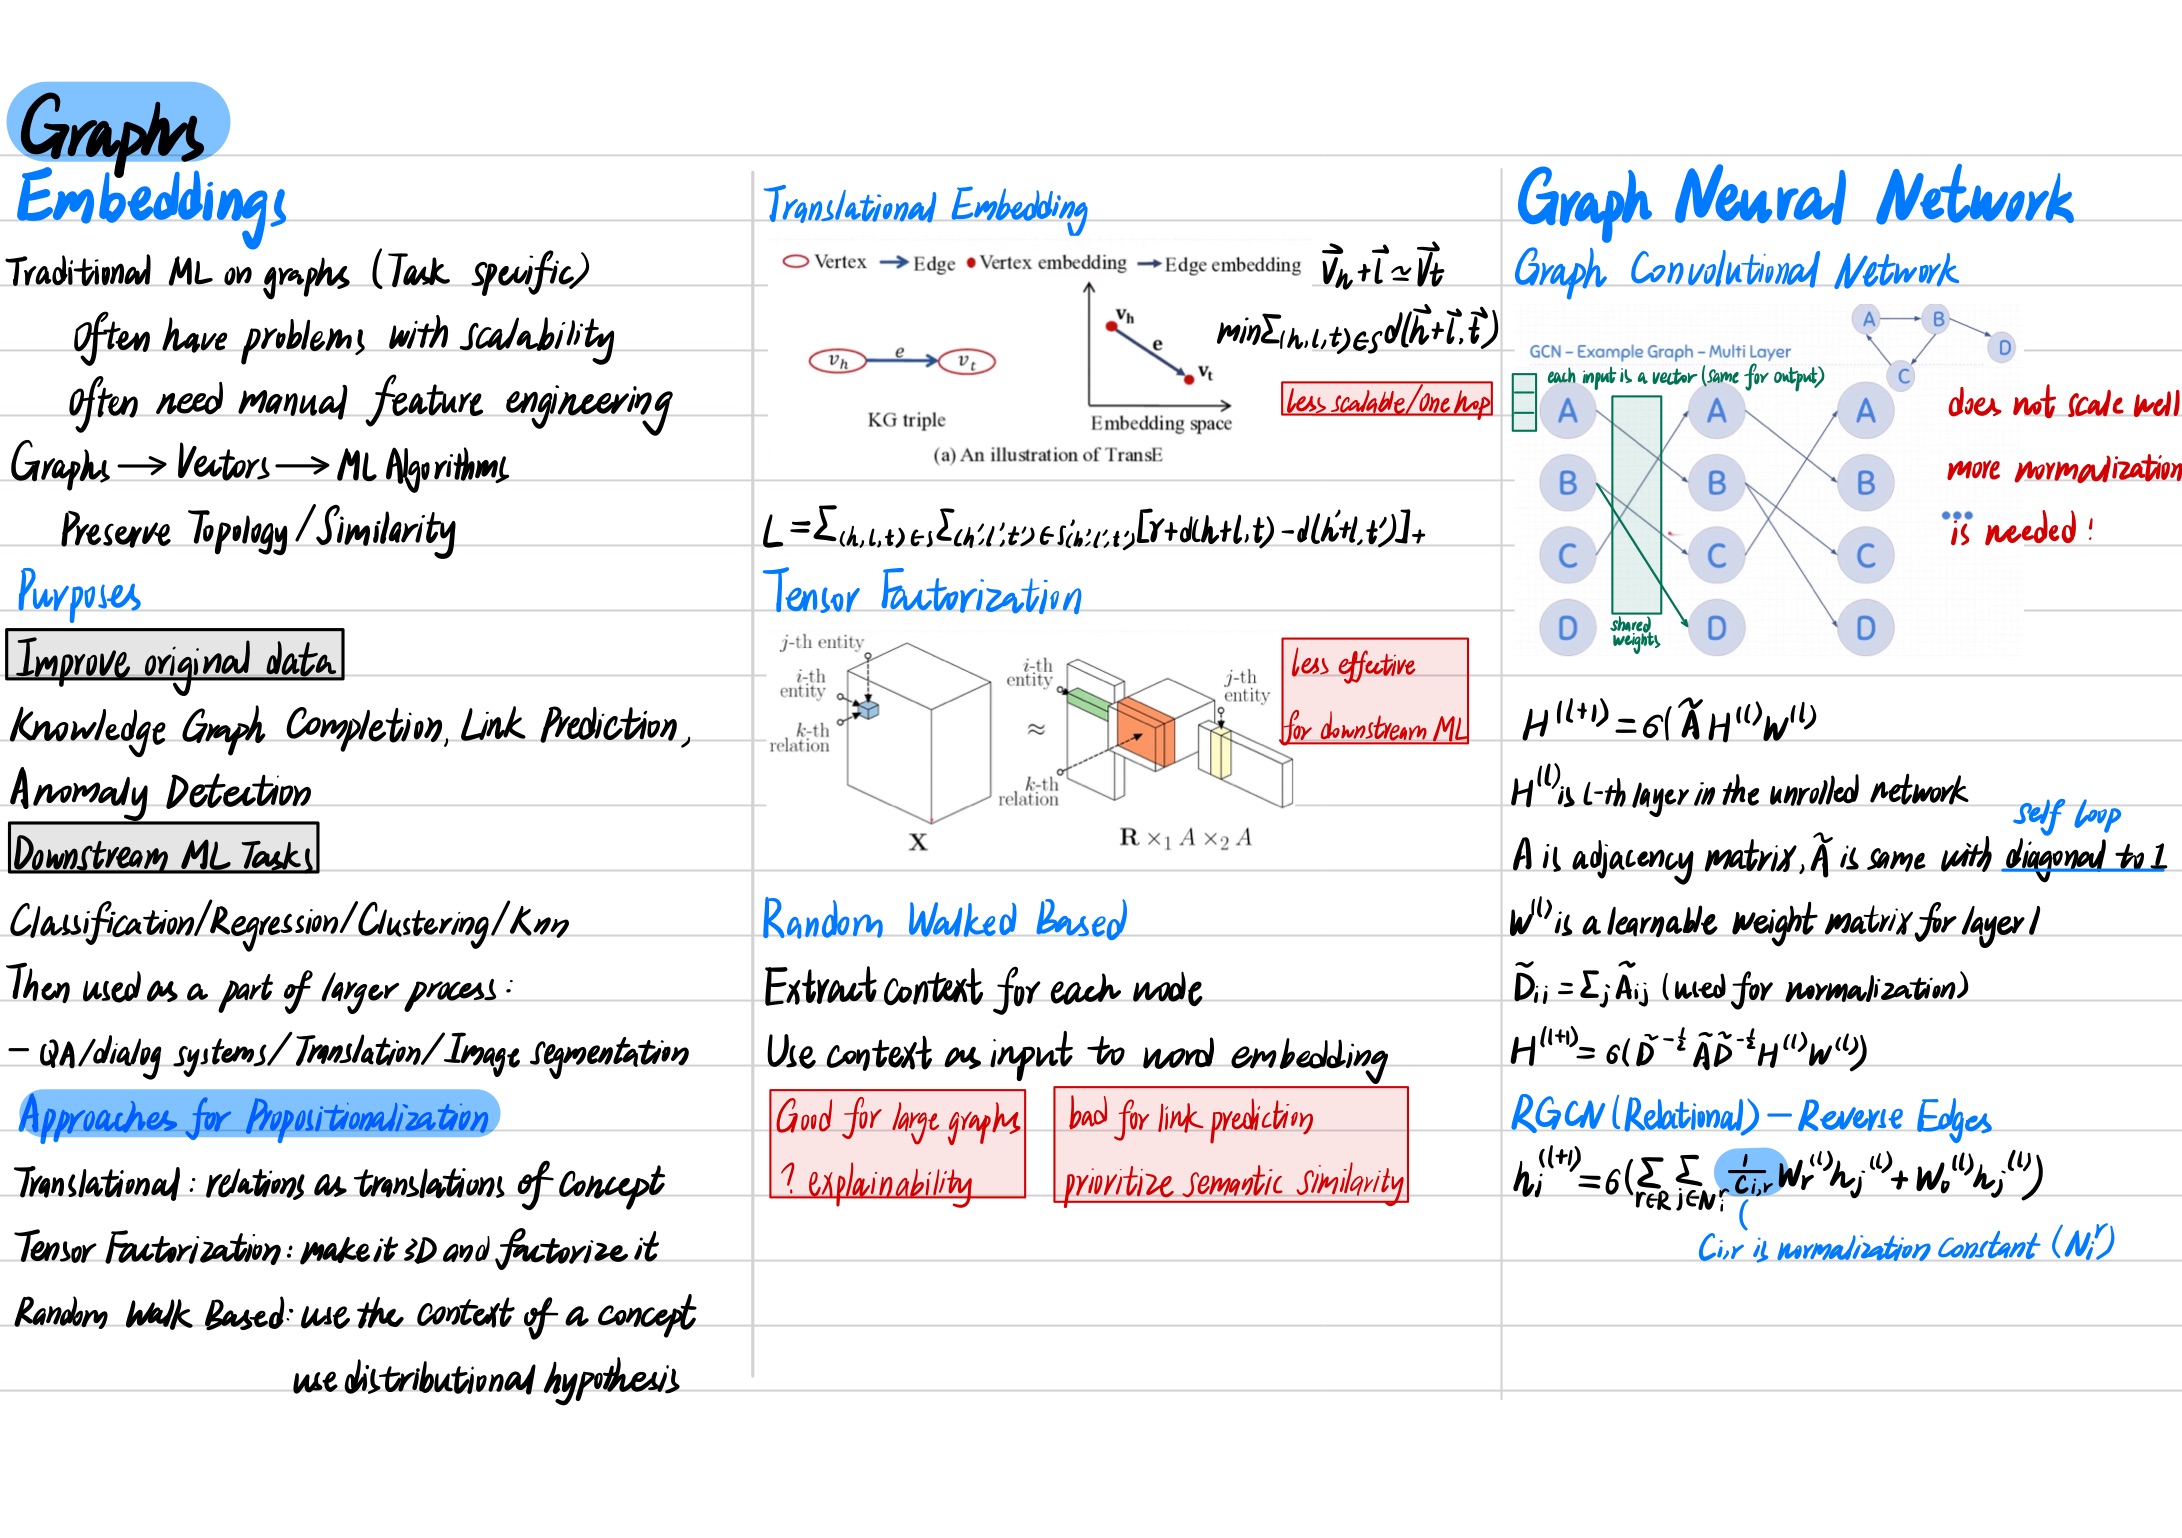 Graphs
Embeddings
Traditional ML on graphs (Task specific)
Often have problems with scalability
Often need manual feature engineering
Graphs → Vectors → ML Algorithms
Preserve Topology / Similarity
Purposes
Improve original data
Knowledge Graph Completion, Link Prediction,
Anomaly Detection
Downstream ML Tasks
Classification/Regression/Clustering/Knn
Then used as a part of larger process:
- QA/dialog systems/Translation/Image segmentation
Approaches for Propositionalization
Translational: relations as translations of concept
Tensor Factorization: make it 3D and factorize it
Random Walk Based: use the context of a concept
use distributional hypothesis
Translational Embedding
Vertex → Edge • Vertex embedding → Edge embedding
v⃗h + l⃗ ≃ v⃗t
min Σ(h,l,t)∈S d(h⃗+l⃗, t⃗)
vh e vt
vh
e
vt
less scalable/one hop
KG triple
Embedding space
(a) An illustration of TransE
L = Σ(h,l,t)∈S Σ(h',l',t')∈S'(h',l',t') [γ+d(h+l,t) - d(h'+l,t')]+
Tensor Factorization
j-th entity
i-th
entity
k-th
relation
X
≈
i-th
entity
j-th
entity
k-th
relation
R ×1 A ×2 A
less effective
for downstream ML
Random Walked Based
Extract context for each node
Use context as input to word embedding
Good for large graphs
? explainability
bad for link prediction
prioritize semantic similarity
Graph Neural Network
Graph Convolutional Network
A B
D
C
GCN – Example Graph – Multi Layer
each input is a vector (same for output)
A A A
B B B
C C C
D D D
shared
weights
does not scale well
more normalization
...
is needed!
H^(l+1) = 6(Ã H^(l) W^(l)
H^(l) is l-th layer in the unrolled network
self loop
A is adjacency matrix, Ã is same with diagonal to 1
W^(l) is a learnable weight matrix for layer l
D̃ii = Σj Ãij (used for normalization)
H^(l+1) = 6(D̃^-½ Ã D̃^-½ H^(l) W^(l))
RGCN (Relational) — Reverse Edges
hi^(l+1) = 6(Σr∈R Σj∈Ni^r 1/ci,r Wr^(l) hj^(l) + Wo^(l) hj^(l))
Ci,r is normalization constant (Ni^r)